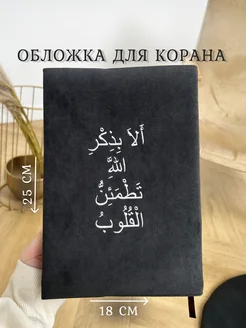 ОБЛОЖКА ДЛЯ КОРАНА
أَلاَ بِذِكْرِ
اللَّهِ
تَطْمَئِنُّ
الْقُلُوبُ
25 СМ
18 СМ